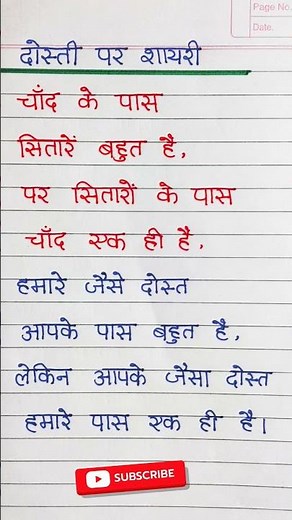 Page No.
Date.
दोस्ती पर शायरी
चाँद के पास
सितारें बहुत है,
पर सितारों के पास
चाँद एक ही है,
हमारे जैसे दोस्त
आपके पास बहुत है,
लेकिन आपके जैसा दोस्त
हमारे पास एक ही है।
SUBSCRIBE